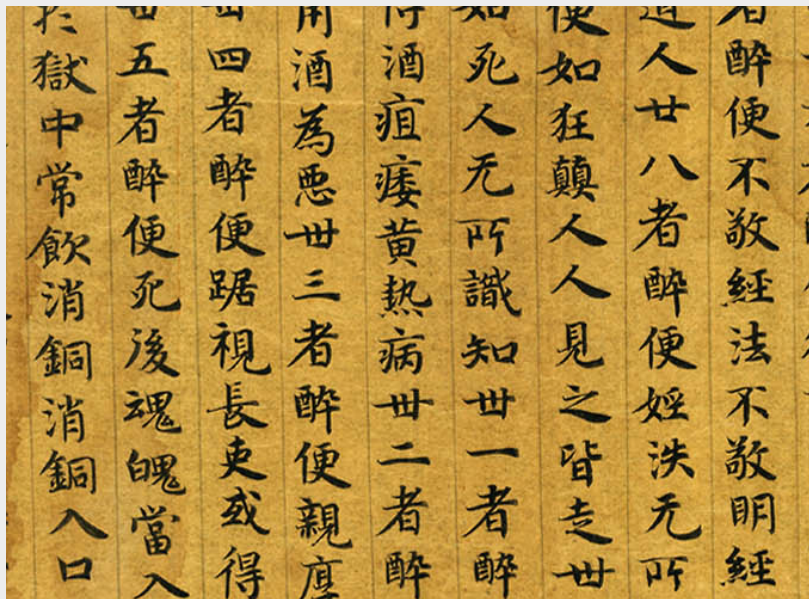 者醉便不敬經法不敬明經
道人廿八者醉便婬泆无所
便如狂顛人人見之皆走丗
如死人无所識知丗一者醉
得酒疽痿黃热病丗二者醉
用酒為惡丗三者醉便親
四者醉便踞視長吏或得
五者醉便死後魂魄當入
獄中常飲消銅消銅入口